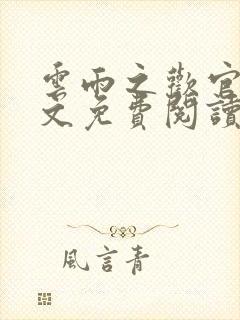 雲雨之歡官
文免費閱讀
風言青